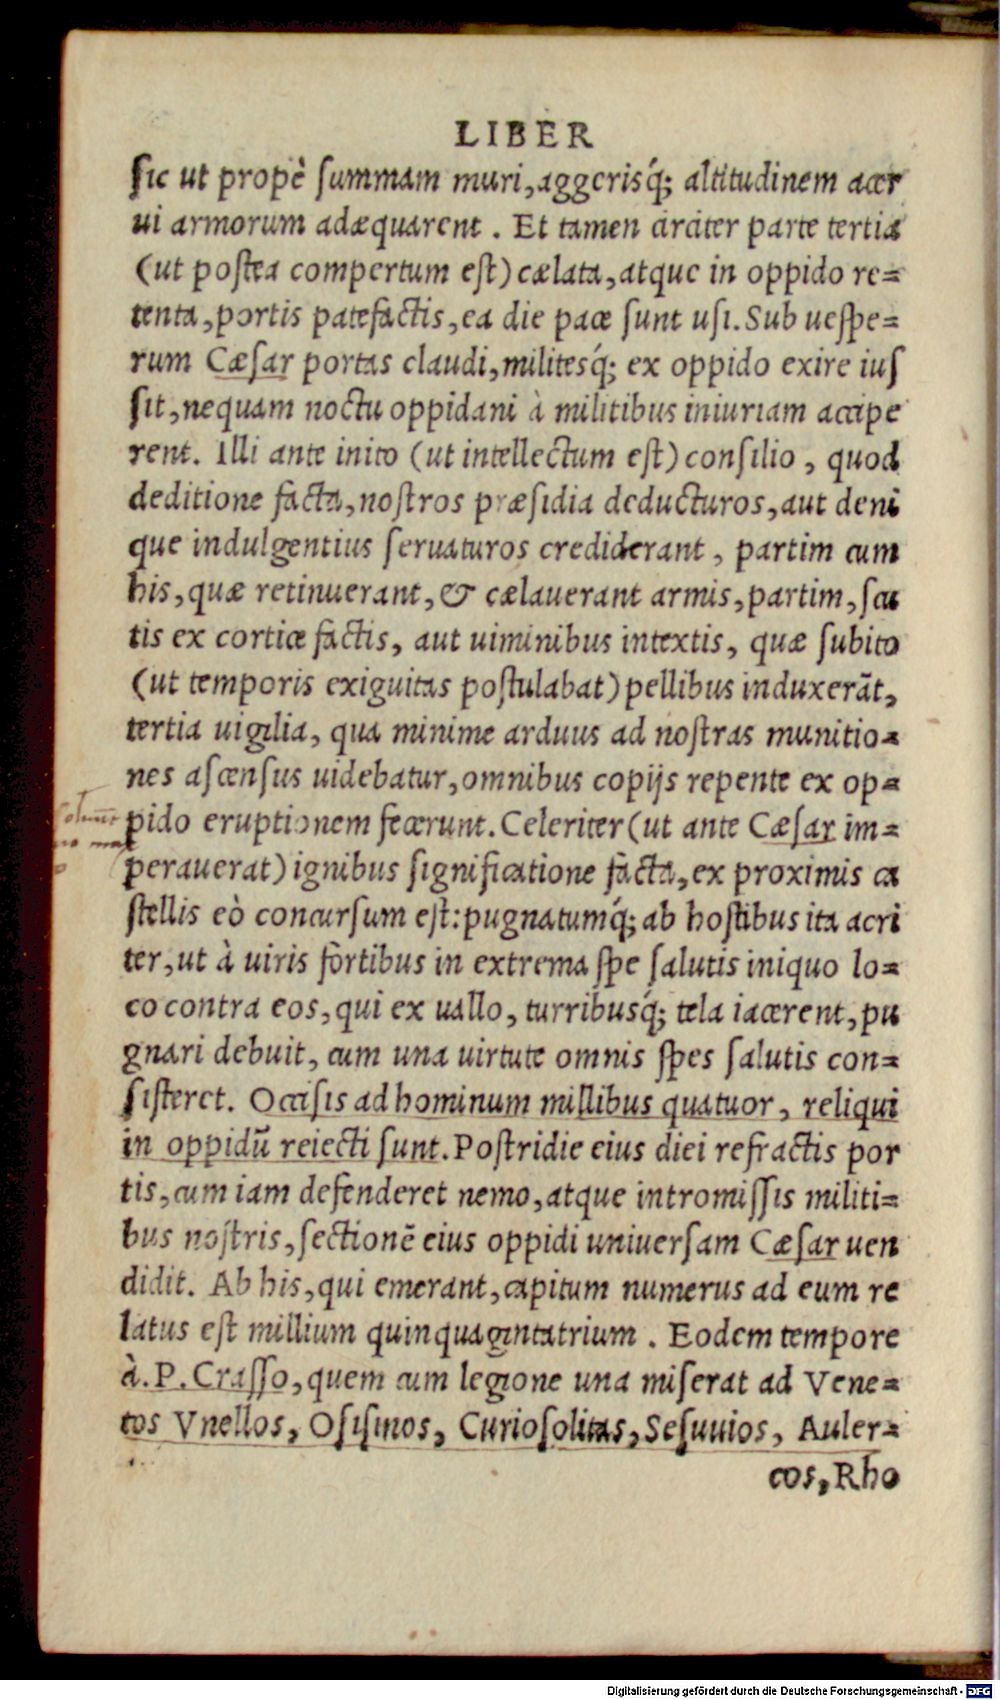 LIBER
sic ut propè summam muri, aggerisq́; altitudinem acer
ui armorum adæquarent. Et tamen circiter parte tertia
(ut postea compertum est) cælata, atque in oppido re=
tenta, portis patefactis, ea die pace sunt usi. Sub uespe=
rum Cæsar portas claudi, militesq́; ex oppido exire ius
sit, nequam noctu oppidani à militibus iniuriam accipe
rent. Illi ante inito (ut intellectum est) consilio, quod
deditione facta, nostros præsidia deducturos, aut deni
que indulgentius seruaturos crediderant, partim cum
his, quæ retinuerant, & cælauerant armis, partim, scu
tis ex cortice factis, aut uiminibus intextis, quæ subito
(ut temporis exiguitas postulabat) pellibus induxerãt,
tertia uigilia, qua minime arduus ad nostras munitio=
nes ascensus uidebatur, omnibus copijs repente ex op=
pido eruptionem fecerunt. Celeriter (ut ante Cæsar im=
perauerat) ignibus significatione facta, ex proximis ca
stellis eò concursum est: pugnatumq́; ab hostibus ita acri
ter, ut à uiris fortibus in extrema spe salutis iniquo lo=
co contra eos, qui ex uallo, turribusq́; tela iacerent, pu
gnari debuit, cum una uirtute omnis spes salutis con=
sisteret. Occisis ad hominum millibus quatuor, reliqui
in oppidũ reiecti sunt. Postridie eius diei refractis por
tis, cum iam defenderet nemo, atque intromissis militi=
bus nostris, sectionẽ eius oppidi uniuersam Cæsar uen
didit. Ab his, qui emerant, capitum numerus ad eum re
latus est millium quinquagintatrium. Eodem tempore
à. P. Crasso, quem cum legione una miserat ad Vene=
tos Vnellos, Osismos, Curiosolitas, Sesuuios, Auler=
cos, Rho
Digitalisierung gefördert durch die Deutsche Forschungsgemeinschaft - DFG